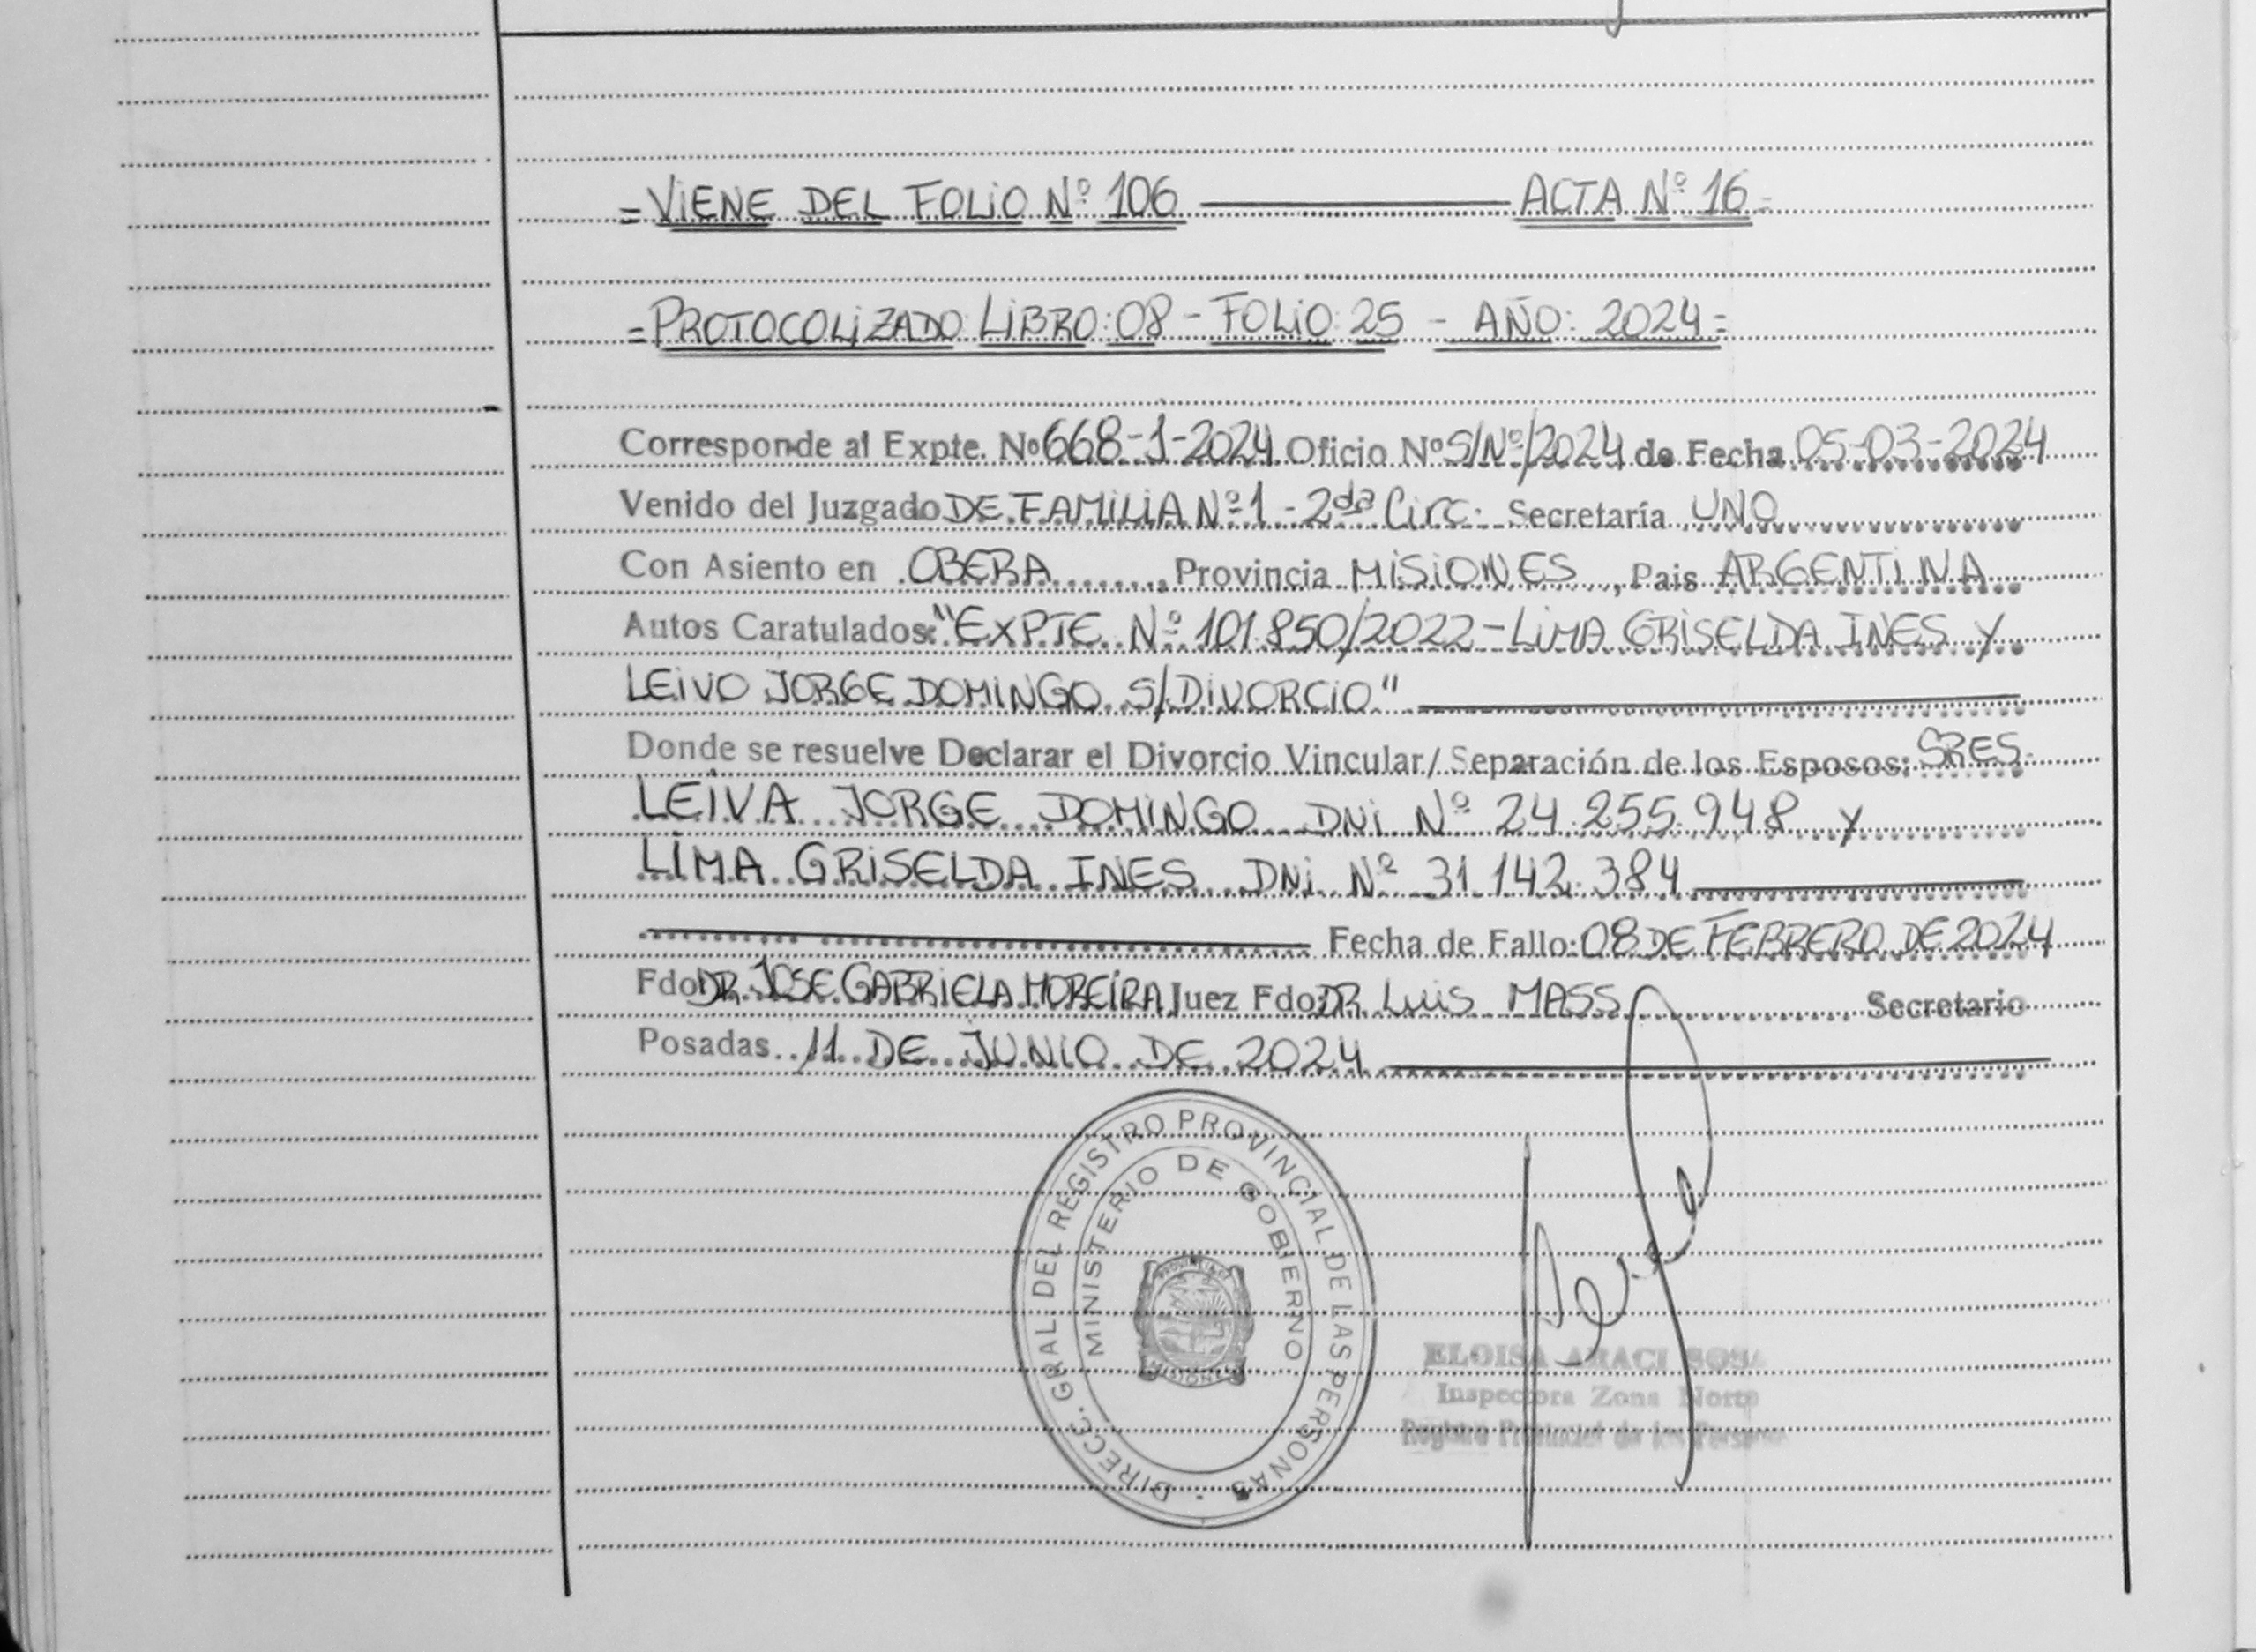 =VIENE DEL FOLIO Nº 106 ACTA Nº 16=
=PROTOCOLIZADO: LIBRO: 08 - FOLIO: 25 - AÑO: 2024=
Corresponde al Expte. Nº 668-1-2024 Oficio Nº S/Nº/2024 de Fecha 05-03-2024
Venido del Juzgado DE FAMILIA Nº 1 - 2da Circ. Secretaría UNO
Con Asiento en OBERA, Provincia MISIONES, Pais ARGENTINA
Autos Caratulados: "EXPTE Nº 101.850/2022 - LIMA GRISELDA INES Y
LEIVO JORGE DOMINGO S/DIVORCIO"
Donde se resuelve Declarar el Divorcio Vincular/ Separación de los Esposos: SRES.
LEIVA JORGE DOMINGO DNI Nº 24.255.948 y
LIMA GRISELDA INES DNI Nº 31.142.384
Fecha de Fallo: 08 DE FEBRERO DE 2024
Fdo: DR. JOSE GABRIELA MOREIRA Juez Fdo: DR. LUIS MASS Secretario
Posadas 11 DE JUNIO DE 2024
DIRECC. GRAL. DEL REGISTRO PROVINCIAL DE LAS PERSONAS
MINISTERIO DE GOBIERNO
PROVINCIA DE
MISIONES
ELOISA ARACI SOSA
Inspectora Zona Norte
Registro Provincial de las Personas